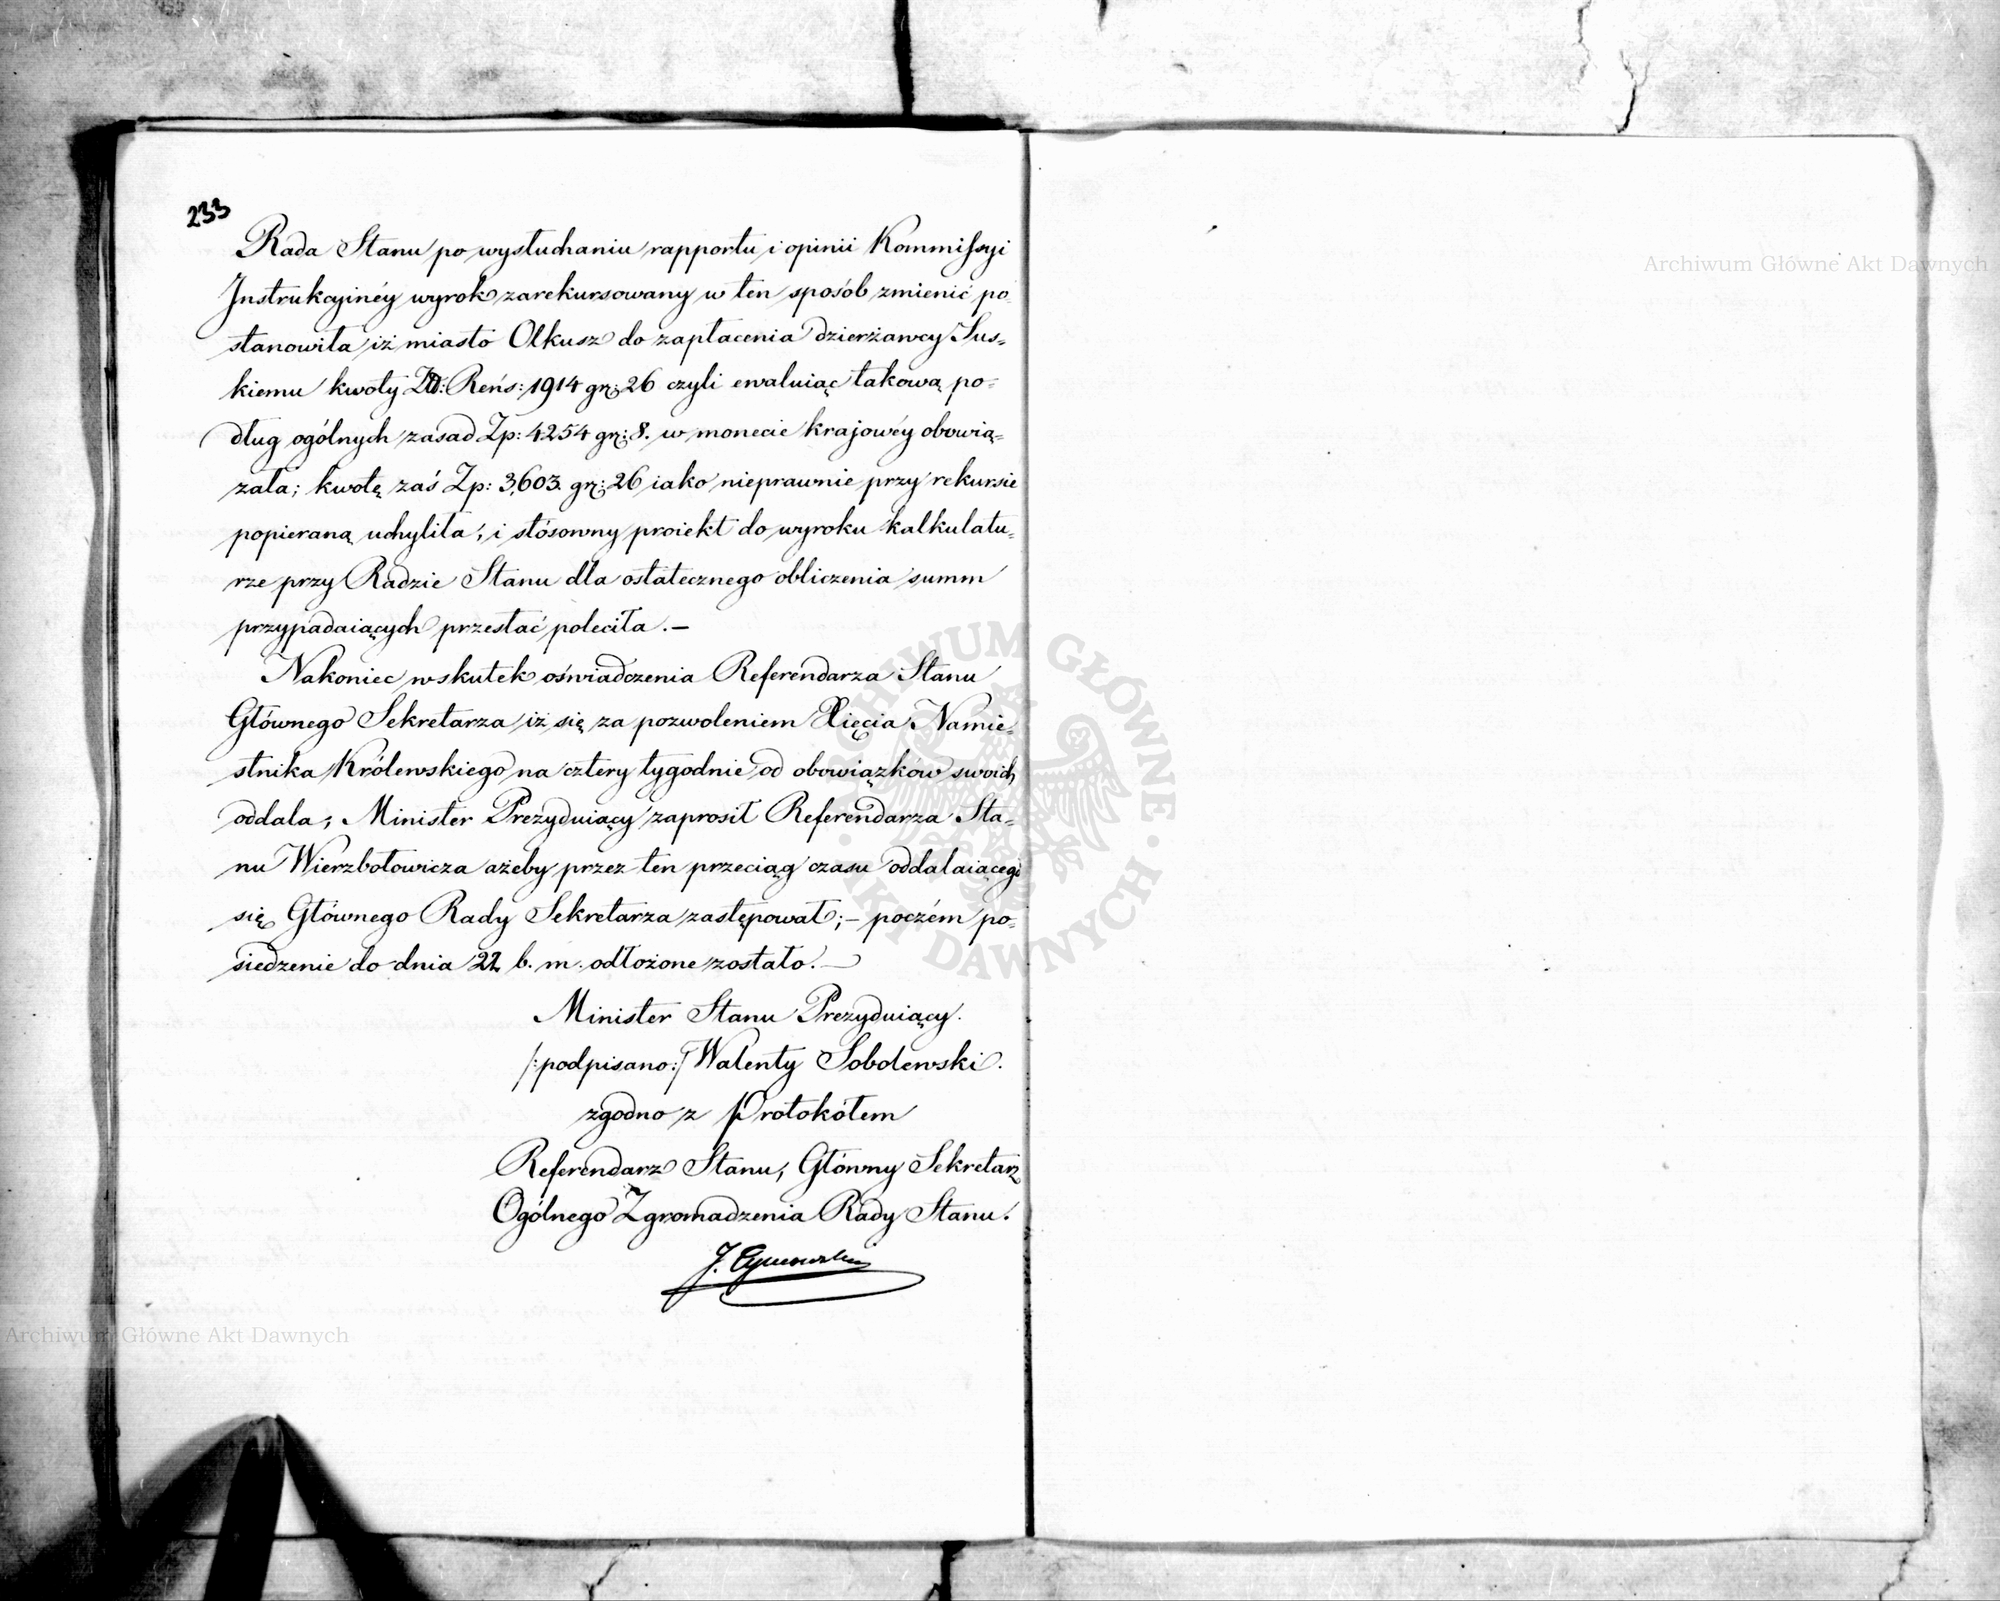 233
Rada Stanu po wysłuchaniu rapportu i opinii Kommissyi
Instrukcyinéy wyrok zarekursowany w ten sposób zmienić po-
stanowiła iż miasto Olkusz do zapłacenia dzierżawcy Sus-
kiemu kwoty Zł: Reńs: 1914 gr: 26 czyli ewaluiąc takową po-
dług ogólnych zasad Zp: 4254 gr: 8. w monecie krajowéy obowią-
zała; kwotę zaś Zp: 3,603. gr: 26 iako nieprawnie przy rekursie
popieraną uchyliła, i stósowny proiekt do wyroku kalkulatu-
rze przy Radzie Stanu dla ostatecznego obliczenia summ
przypadaiących przesłać poleciła.—
Nakoniec wskutek oświadczenia Referendarza Stanu
Głównego Sekretarza iż się za pozwoleniem Xięcia Namie-
stnika Królewskiego na cztery tygodnie od obowiązków swoich
oddala; Minister Prezyduiący zaprosił Referendarza Sta-
nu Wierzbołowicza ażeby przez ten przeciąg czasu oddalaiącego
się Głównego Rady Sekretarza zastępował;— poczém po-
siedzenie do dnia 22 b. m. odłożone zostało.—
Minister Stanu Prezyduiący.
/:podpisano:/ Walenty Sobolewski.
zgodno z Protokółem
Referendarz Stanu, Główny Sekretarz
Ogólnego Zgromadzenia Rady Stanu.
Archiwum Główne Akt Dawnych
Archiwum Główne Akt Dawnych
ARCHIWUM GŁÓWNE · AKT DAWNYCH ·